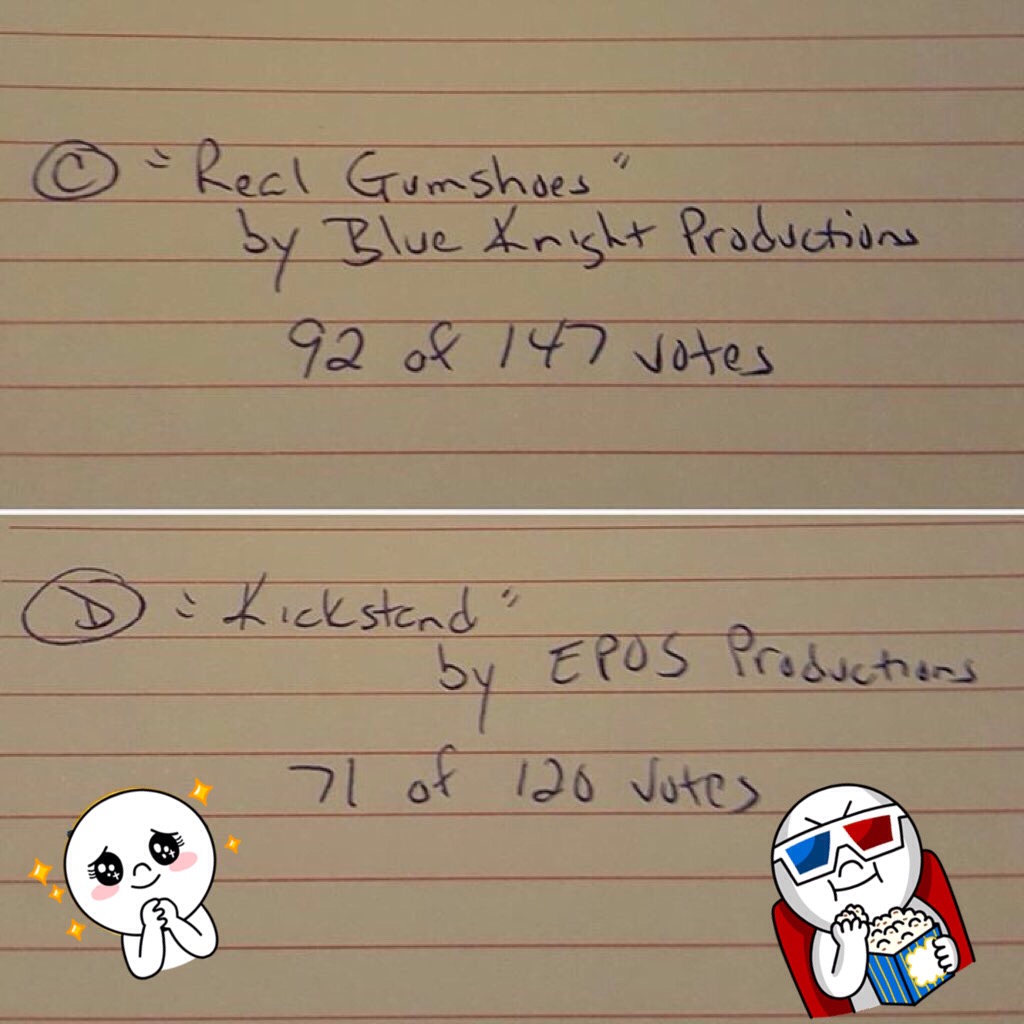 C "Real Gumshoes"
by Blue Knight Productions
92 of 147 votes
D "Kickstand"
by EPOS Productions
71 of 120 votes